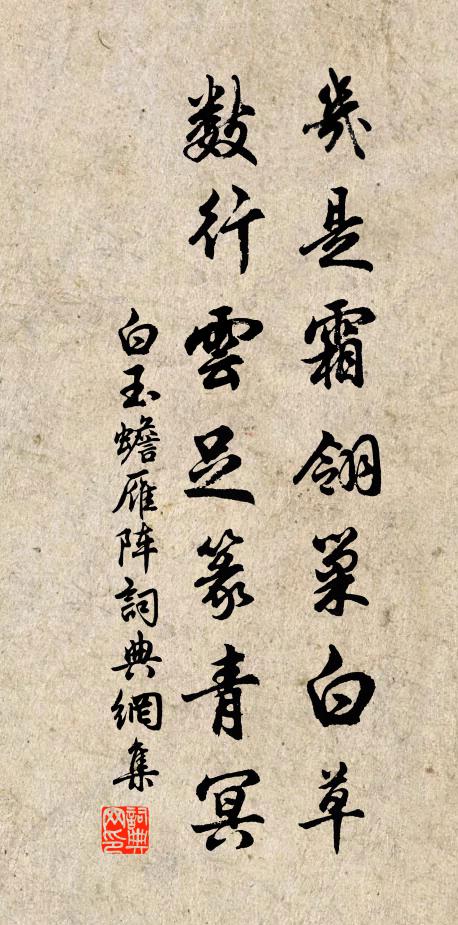 幾是霜翎巢白草
數行雲足篆青冥
白玉蟾雁阵詞典網集
詞典网印